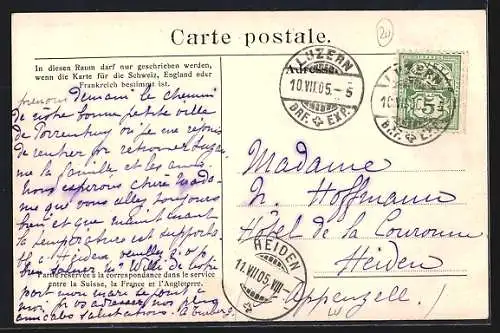 Carte postale.
In diesen Raum darf nur geschrieben werden,
wenn die Karte für die Schweiz, England oder
Frankreich bestimmt ist.
Adresse.
LUZERN
10.VII.05.-5
BRF. EXP.
LUZERN
10.VII.05
BRF. EXP.
5
prenons demain le chemin
de notre bonne petite ville
de Porrentruy où je me réjouis
de rentrer
la famille et les amis.
Nous espérons chère Mada
me que vous allez toujours
bien et que maintenant
la température est supporta
à Heiden,
Partie réservée à la correspondance dans le service
entre la Suisse, la France et l'Angleterre.
de votre
part mon
amicales salutations.
Madame
H. Hoffmann
Hôtel de la Couronne
Heiden
Appenzell!
HEIDEN
11.VII.05.VIII-